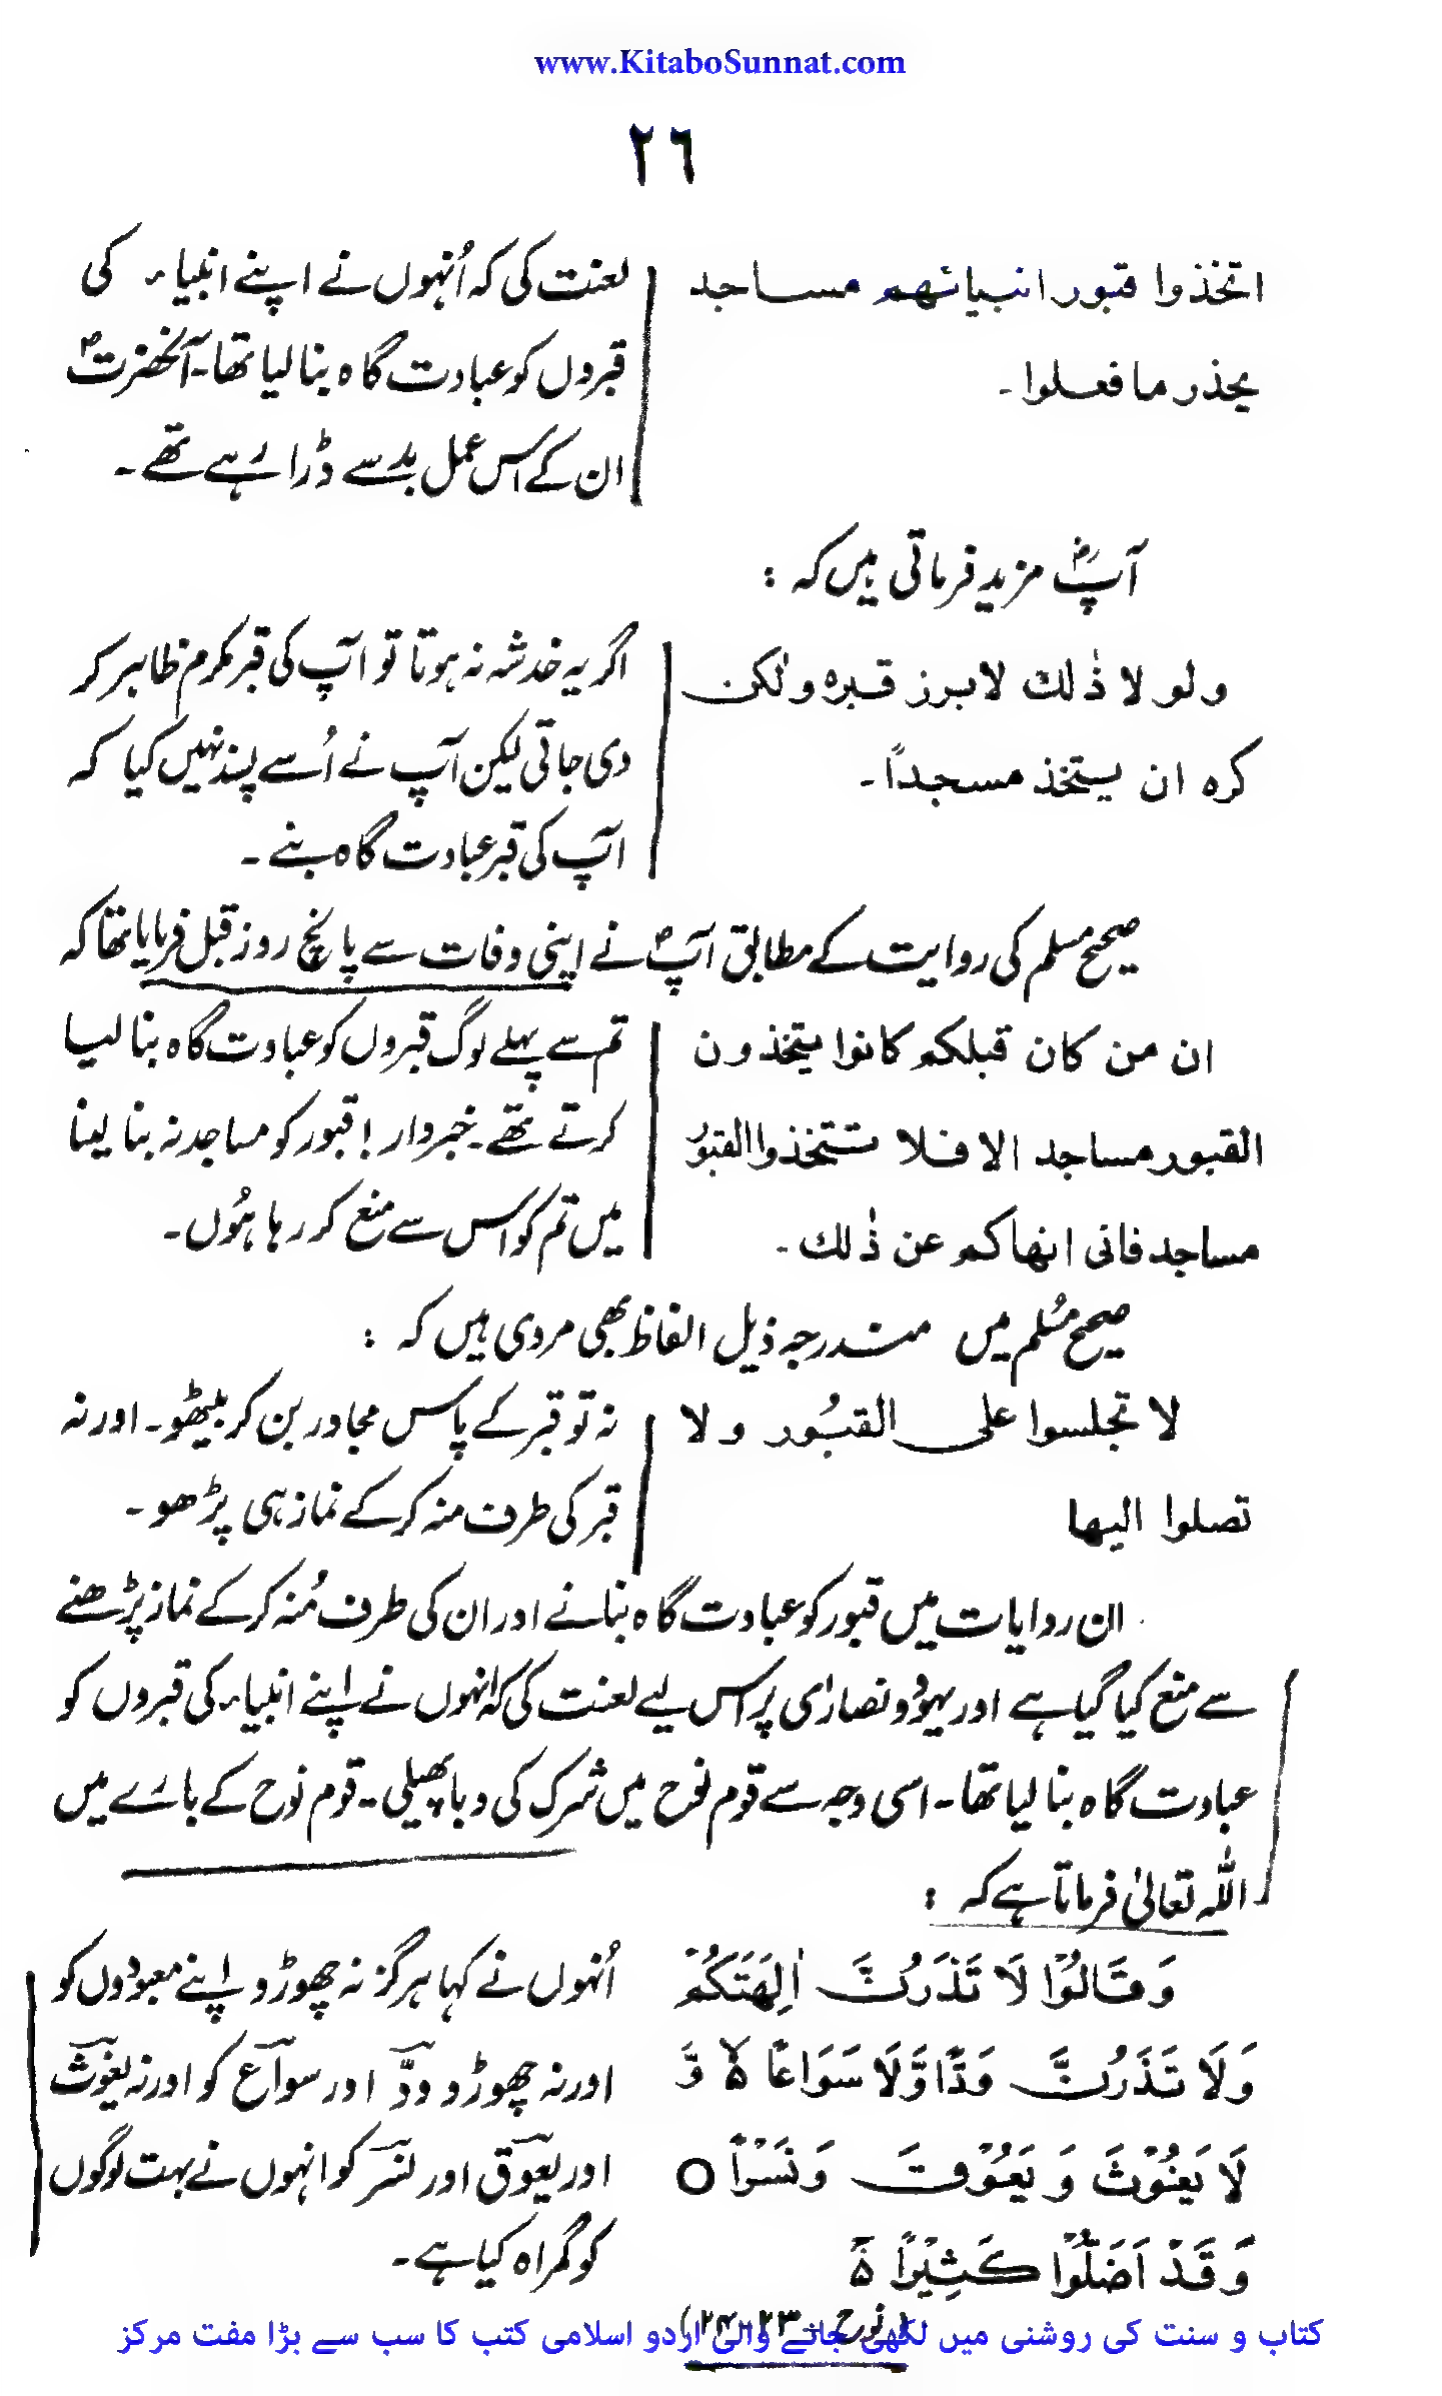 www.KitaboSunnat.com
٢٦
اتخذوا قبور انبيائهم مساجد
يحذر ما فعلوا۔
لعنت کی کہ اُنہوں نے اپنے انبیاء کی
قبروں کو عبادت گاہ بنا لیا تھا۔ آنحضرتؐ
ان کے اس عمل بد سے ڈرا رہے تھے۔
آپؓ مزید فرماتی ہیں کہ :
ولو لا ذٰلك لابرز قبره ولٰكن
كره ان يستخذ مسجداً۔
اگر یہ خدشہ نہ ہوتا تو آپ کی قبر مکرم ظاہر کر
دی جاتی لیکن آپ نے اُسے پسند نہیں کیا کہ
آپ کی قبر عبادت گاہ بنے۔
صحیح مسلم کی روایت کے مطابق آپؐ نے اپنی وفات سے پانچ روز قبل فرمایا تھا کہ
ان من كان قبلكم كانوا يتخذون
القبور مساجد الا فلا تتخذوا القبور
مساجد فانى انهاكم عن ذٰلك۔
تم سے پہلے لوگ قبروں کو عبادت گاہ بنا لیا
کرتے تھے۔ خبردار ! قبور کو مساجد نہ بنا لینا
میں تم کو اس سے منع کر رہا ہُوں۔
صحیح مُسلم میں مندرجہ ذیل الفاظ بھی مروی ہیں کہ :
لا تجلسوا على القبُور ولا
تصلوا اليها
نہ تو قبر کے پاس مجاور بن کر بیٹھو۔ اور نہ
قبر کی طرف منہ کر کے نماز ہی پڑھو۔
ان روایات میں قبور کو عبادت گاہ بنانے اور ان کی طرف مُنہ کر کے نماز پڑھنے
سے منع کیا گیا ہے اور یہود و نصارٰی پر اس لیے لعنت کی کہ انہوں نے اپنے انبیاء کی قبروں کو
عبادت گاہ بنا لیا تھا۔ اسی وجہ سے قوم نوح میں شرک کی وبا پھیلی۔ قوم نوح کے بارے میں
اللہ تعالیٰ فرماتا ہے کہ :
وَقَالُوْا لَا تَذَرُنَّ اٰلِهَتَكُمْ
وَلَا تَذَرُنَّ وَدًّا وَّلَا سَوَاعًا ۵ۙ وَّ
لَا يَغُوْثَ وَ يَعُوْقَ وَ نَسْرًا ○
وَقَدْ اَضَلُّوْا كَثِيْرًا ۵ۚ
(نوح ۲۳ - ۲۴)
اُنہوں نے کہا ہرگز نہ چھوڑو اپنے معبودوں کو
اور نہ چھوڑو ودّ اور سواع کو اور نہ یغوث
اور یعوق اور نسر کو انہوں نے بہت لوگوں
کو گمراہ کیا ہے۔
کتاب و سنت کی روشنی میں لکھی جانے والی اردو اسلامی کتب کا سب سے بڑا مفت مرکز